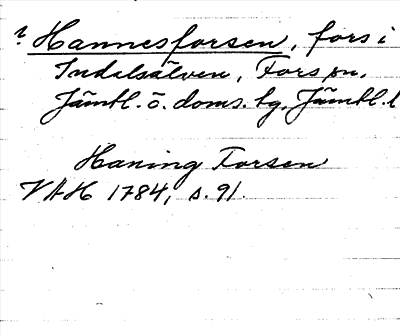 ? Hannesforsen, fors i
Indalsälven, Fors sn,
Jämtl. ö. doms. lg, Jämtl. l
Haning Forsen
VAH 1784, s. 91.